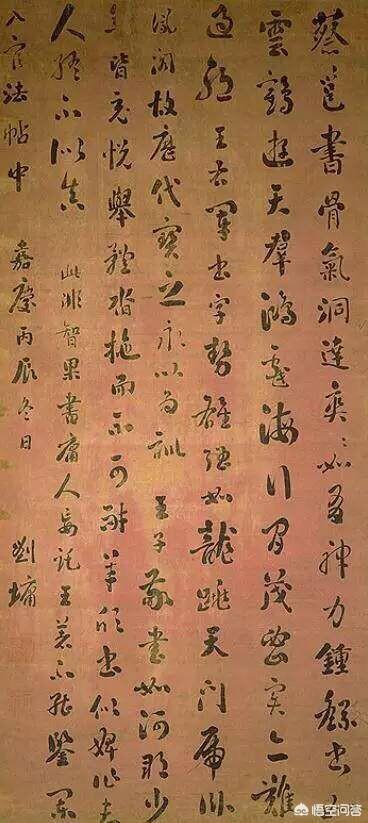 蔡邕書骨氣洞達爽〻如有神力鍾繇書如
雲鶴遊天羣鴻戲海行間茂密實亦難
過 王右軍書字勢雄强如龍跳天門虎臥
鳳閣故歷代寶之永以為訓 王子敬書如河朔少
年皆充悅舉體沓拖而不可耐羊欣書似婢作夫
人終不似真 此非智果書庸人妄託王著不能鑒
入官法帖中 嘉慶丙辰冬日 劉墉
悟空问答